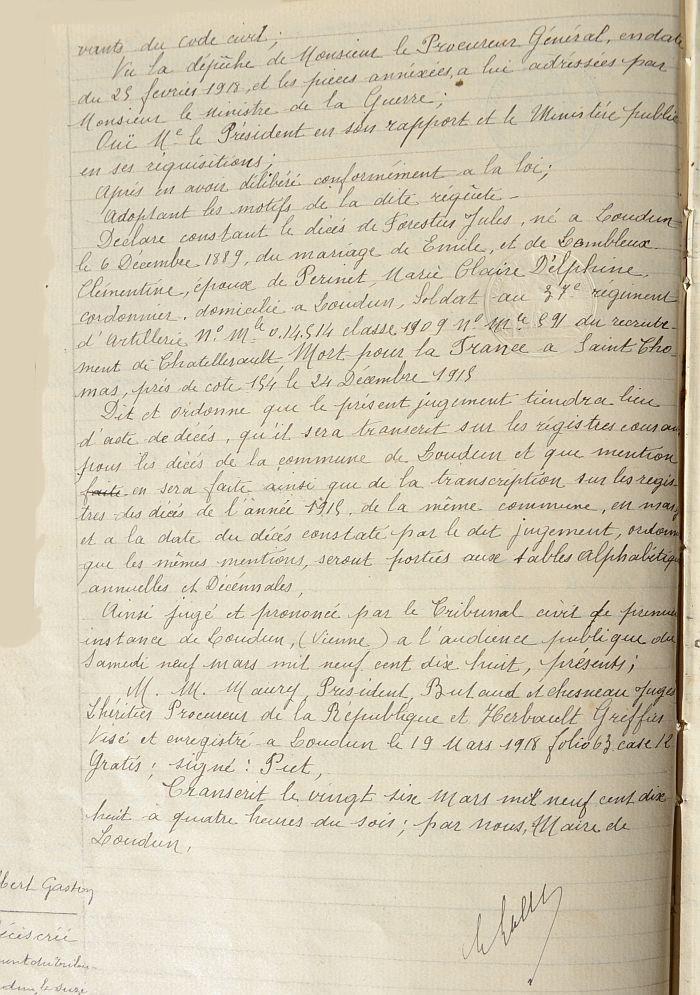 vants du code civil;
Vu la dépêche de Monsieur le Procureur Général, en date
du 25 fevrier 1918, et les pièces annéxées, a lui adressées par
Monsieur le Ministre de la Guerre;
Ouï Mr le Président en son rapport et le Ministère public
en ses réquisitions;
Après en avoir délibéré conformément a la loi;
Adoptant les motifs de la dite réquête -
Declare constant le décès de Forestier Jules, né a Loudun
le 6 Décembre 1889, du mariage de Emile, et de Lombleux
Clémentine, époux de Perinet, Marie Claire Delphine,
cordonnier, domicilié a Loudun, Soldat au régiment
d'Artillerie No Mle 0.14.514 classe 1909 No Mle 591 du recrute-
ment de Chatellerault, Mort pour la France a Saint Tho-
mas, près de cote 154 le 24 Décembre 1915
Dit et ordonne que le présent jugement tiendra lieu
d'acte de décés, qu'il sera transcrit sur les régistres courants
pour les décés de la commune de Loudun et que mention
faite en sera faite ainsi que de la transcription sur les regis-
tres des décès de l'année 1915, de la même commune, en marge
et a la date du décés constaté par le dit jugement, ordonne
que les mêmes mentions, seront portées aux tables alphabétiques
annuelles et Décennales,
Ainsi jugé et prononcé par le Tribunal civil de premiere
instance de Loudun, (Vienne) a l'audience publique du
Samedi neuf mars mil neuf cent dix huit, présents;
M. M. Maury, Président, Butaud et Chesneau Juges
Lhéritier Procureur de la République et Herbault Greffier
Visé et enregistré a Loudun le 19 Mars 1918 folio 63 case 12
Gratis; signé: Piet,
Transcrit le vingt six Mars mil neuf cent dix
huit à quatre heures du soir; par nous, Maire de
Loudun,
bert Gaston